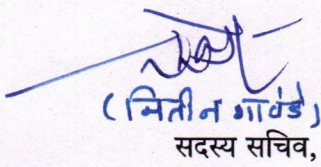 (नितीन गावंडे)
सदस्य सचिव,